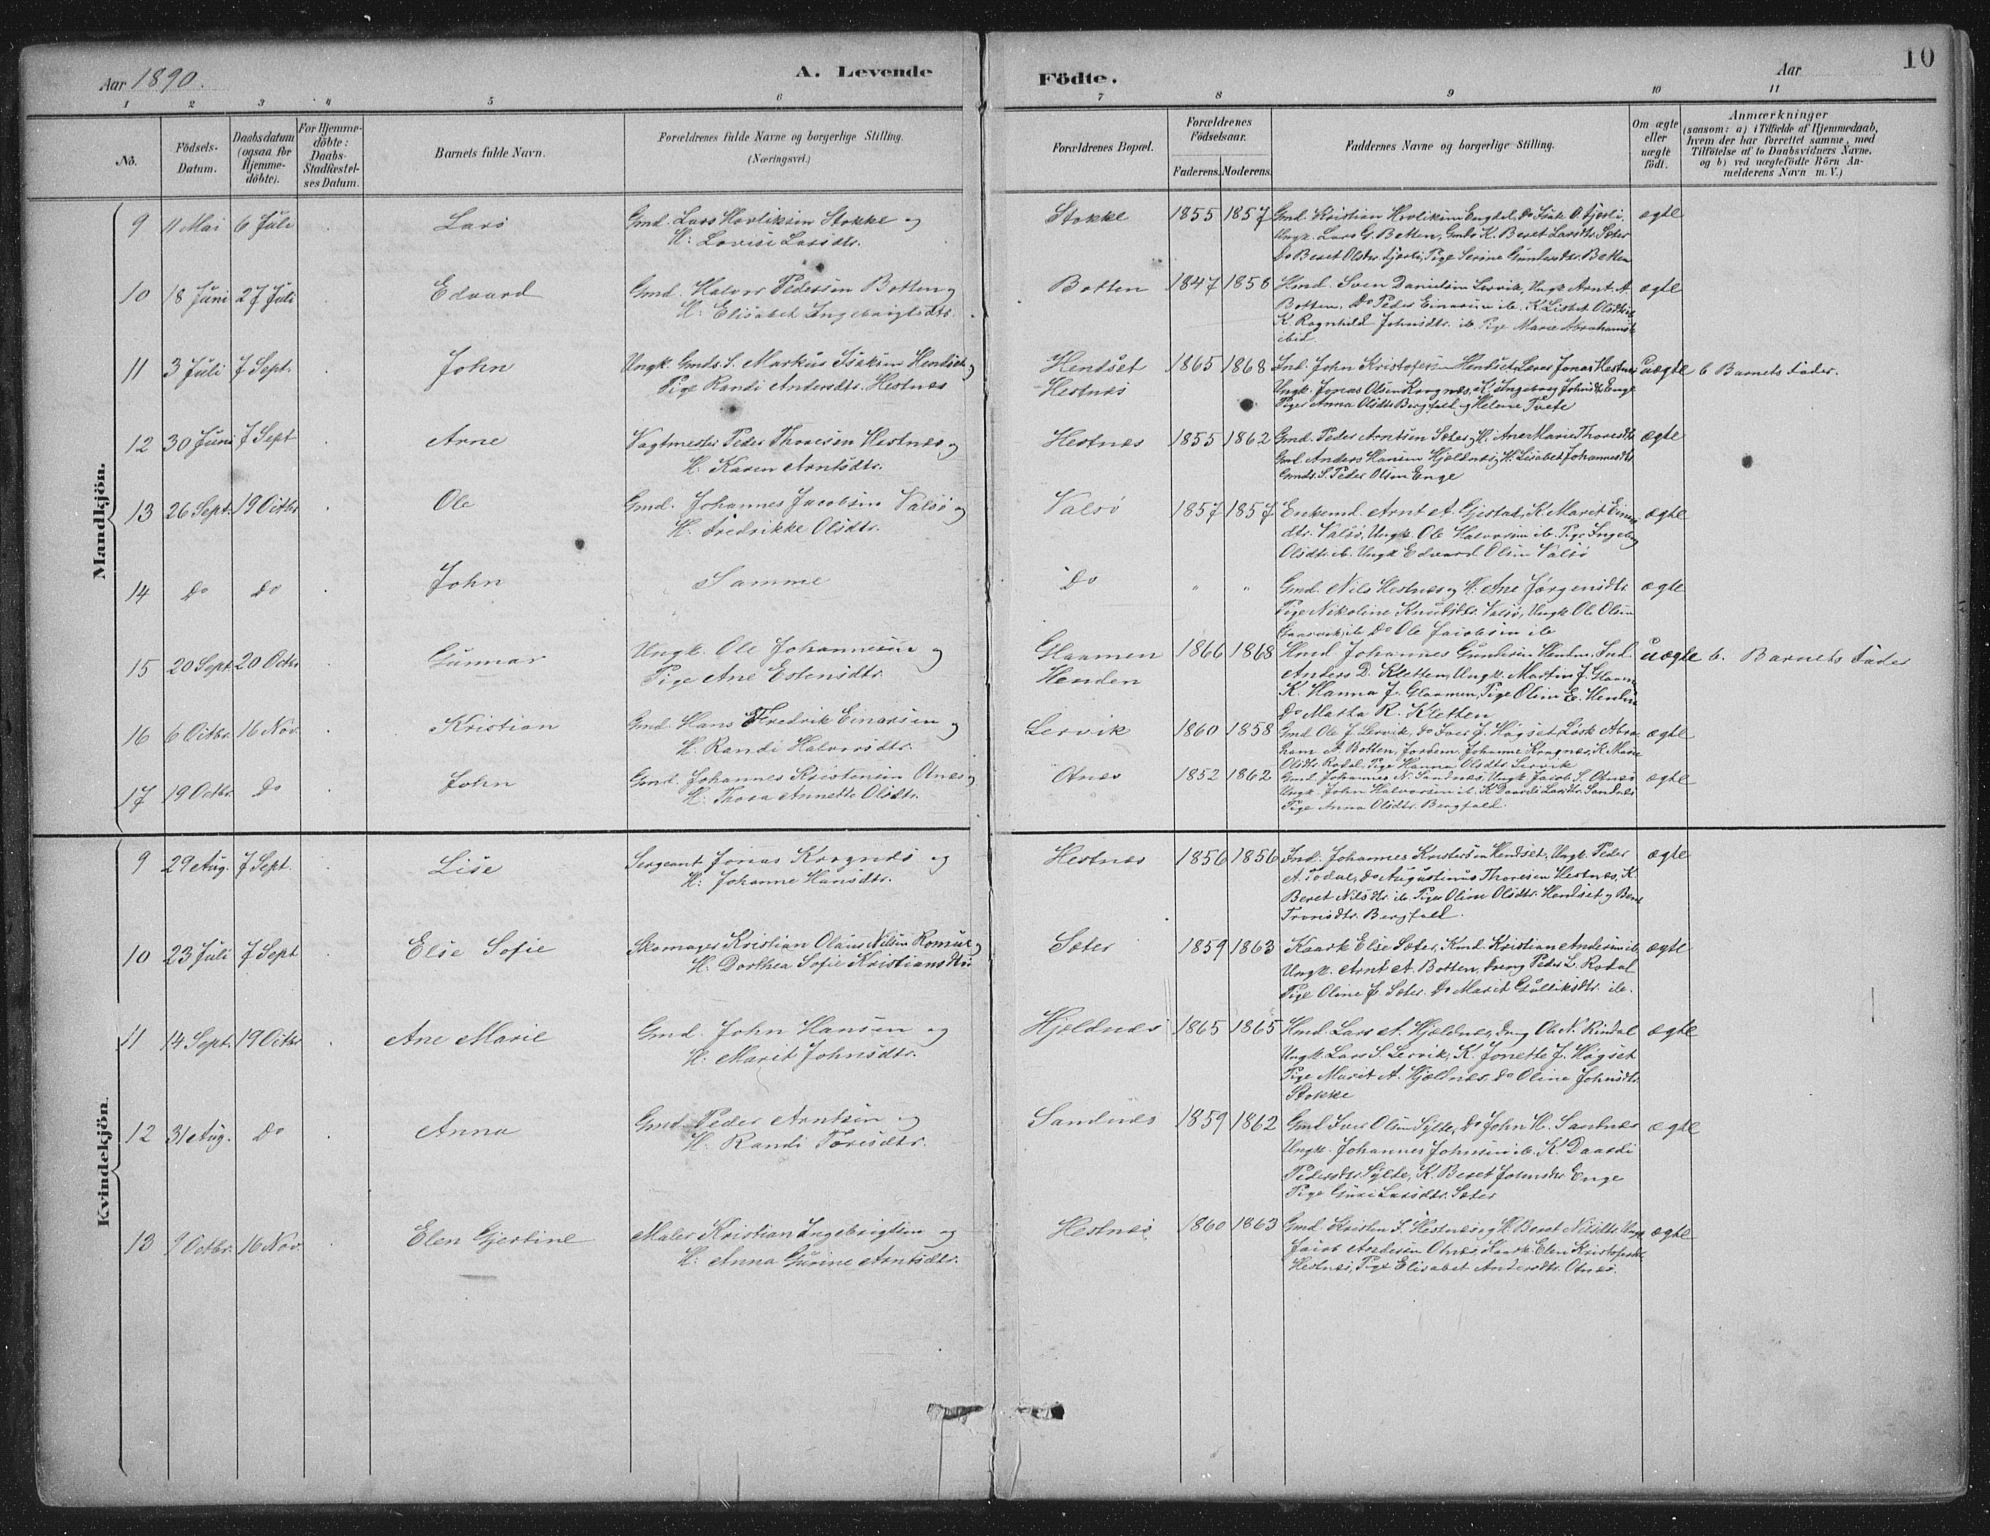 Aar 1890.
A. Levende
Födte.
Aar
10
1 2 3 4 5 6 7 8 9 10 11
No.
Födsels-Datum.
Daabsdatum (ogsaa for Hjemme-döbte).
For Hjemme-döbte: Daabs-Stadfæstel-ses Datum.
Barnets fulde Navn.
Forældrenes fulde Navne og borgerlige Stilling. (Næringsvei.)
Forældrenes Bopæl.
Forældrenes Födselsaar.
Faderens. Moderens.
Faddernes Navne og borgerlige Stilling.
Om ægte eller uægte födt.
Anmærkninger
(saasom: a) i Tilfælde af Hjemmedaab,
hvem der har forrettet samme, med
Tilföielse af to Daabsvidners Navne,
og b) ved uægtefödte Börn An-
melderens Navn m. V.)
Mandkjön.
9 11 Mai 6 Juli Lars Gmd. Lars Stokke og
H: Lovise Larsdtr.
Stokke 1855 1857 Gmd. Kristian Engdal, Do Isak O.
Ungk. Lars G. Botten, Gmds K. Beret Larsdtr. Sæter
Do Beret Olsdtr. Pige Serine Gundersdtr. Botten
ægte
10 18 Juni 27 Juli Edvard Gmd. Halvor Pedersen Botten og
H: Elisabet Ingebrigtsdtr.
Botten 1847 1858 Hmd. Sven Danielsen Lervik, Ungk. Arnt A.
Botten, Do Peder Einarsen ib. K. Lisbet Olsdtr. ib
K. Ragnhild Johnsdtr. ib. Pige Marie Abrahamsd.
ibid.
ægte
11 3 Juli 7 Sept. John Ungk. Gmds. S. Markus Isaksen Hendset og
Pige Randi Andersdtr. Hestnæs
Hendset
Hestnæs
1865 1868 Ind. John Kristofersen Hendset, Jonas Hestnes
Ungk. Jonas Olsen Krognæs, K. Ingeborg Johnsd. Enge
Piger Anna Olsdtr. Bergfald og Heline Tvete
uægte b Barnets Fader.
12 30 Juni 7 Sept Arne Vagtmester Peder Thoresen Hestnæs og
H: Karen Arntsdtr.
Hestnæs 1855 1862 Gmd. Peder Arntsen Sæter og H: Ane Marie Thoresdtr.
Gmd. Anders Hansen Hjeldnes og H. Lisabet Johannesdtr
Gmds. S. Peder Olsen Enge
ægte
13 26 Sept. 19 Octbr Ole Gmd. Johannes Jacobsen Valsø og
H: Fredrikke Olsdtr.
Valsø 1857 1857 Enkemd. Arnt A. Gjestad, K. Marit Einars
dtr. Valsø, Ungk. Ole Halvorsen ib. Pige Ingeborg
Olsdtr. ib. Ungk. Edvard Olsen Valsø
ægte
14 Do Do John Samme
Do " " Gmd. Nils Hestnæs og H: Ane Jørgensdtr.
Pige Nikoline Knudsdtr. Valsø, Ungk Ole Olsen
ib Do Ole Jacobsen ib
ægte
15 20 Sept 20 Octbr Gunnar Ungk. Ole Johannesen og
Pige Ane Estensdtr.
Glaamen
Henden
1866 1868 Hmd. Johannes Gundersen Henden, Ind.
Anders D. Kletten, Ungk. Martin J. Glaam
K. Hanna J. Glaamen, Pige Oline E. Henden
Do Matha R. Kletten
uægte b. Barnets Fader
16 6 Octbr. 16 Nov. Kristian Gmd. Hans Fredrik Einarsen og
H: Randi Halvorsdtr.
Lervik 1860 1858 Gmd. Ole J. Lervik, Do Iver J. Høgset, Abra
ham A. Botten, Jordem. Johanne Krognes, K. Marie
Olsdtr. Rodal, Pige Hanna Olsdtr. Lervik
ægte
17 19 Octbr. Do John Gmd. Johannes Kristensen Otnes og
H: Thora Annette Olsdtr.
Otnes 1852 1862 Gmd. Johannes N. Sandnæs, Ungk. Jacob S. Otnes
Ungk. John Halvorsen ib. K. Daardi Larsdtr. Sandnes
Pige Anna Olsdtr. Bergfald.
ægte
Kvindekjön.
9 29 Aug. 7 Sept. Lise Sergeant Jonas Krognæs og
H: Johanne Hansdtr.
Hestnæs 1856 1856 Ind. Johannes Kristensen Hendset, Ungk. Peder
A. Todal, Do Augustinus Thoresen Hestnæs, K.
Beret Nilsdtr. ib. Piger Oline Olsdtr. Hendset og Beret
Tronsdtr. Bergfald.
ægte
10 23 Juli 7 Sept Else Sofie Skomager Kristian Olaus Nilsen Romur og
H. Dorthea Sofie Kristiansdtr
Sæter 1859 1863 Kaark Else Sæter, Kmd. Kristian Andersen ib,
Ungk. Arnt A. Botten, Dreng Peder L. Rodal
Pige Oline J. Sæter. Do Marit Gulliksdtr. ib.
ægte
11 14 Sept. 19 Octbr Ane Marie Gmd. John Hansen og
H: Marit Johnsdtr.
Hjeldnæs 1865 1865 Hmd. Lars A. Hjældnes, Ole N. Rindal
Ungk. Lars S. Lervik, K. Jonette J. Høgset
Pige Marit A. Hjældnæs, Do Oline Johnsdtr.
Stokke
ægte
12 31 Aug. Do Anna Gmd. Peder Arntsen og
H. Randi Toresdtr.
Sandnæs 1859 1862 Gmd Iver Olsen Sylte, Do John H. Sandnæs
Ungk. Johannes Johnsen ib. K. Daardi
Pedersdtr. Sylte, K. Beret Johnsdtr Enge
Pige Guri Larsdtr. Sæter
ægte
13 9 Octbr. 16 Nov. Elen Gjertine Maler Kristian Ingebrigtsen og
H: Anna Gurine Arntsdtr.
Hestnæs 1860 1863 Gmd. Kristen S. Hestnæs og H. Beret Nilsdtr. Ungk
Jacob Andersen Otnes, Kaark. Elen Kristofersd.
Hestnæs, Pige Elisabet Andersdtr. Otnes.
ægte